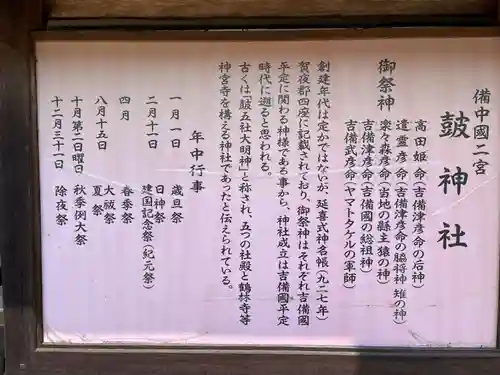 備中國二宮
皷神社
御祭神
高田姫命(吉備津彦命の后神)
遣霊彦命(吉備津彦命の脇将神 雉の神)
楽々森彦命(当地の縣主 猿の神)
吉備津彦命(吉備國の総祖神)
吉備武彦命(ヤマトタケルの軍師)
創建年代は定かではないが、延喜式神名帳(九二七年)
賀夜郡四座に記載されており、御祭神はそれぞれ吉備國
平定に関わる神様である事から、神社成立は吉備國平定
時代に遡ると思われる。
古くは「皷五社大明神」と称され、五つの社殿と鶴林寺等
神宮寺を構える神社であったと伝えられている。
年中行事
一月一日 歳旦祭
二月十一日 日神祭
建国記念祭(紀元祭)
四月 春季祭
八月十五日 大祓祭
夏祭
十月第二日曜日 秋季例大祭
十二月三十一日 除夜祭